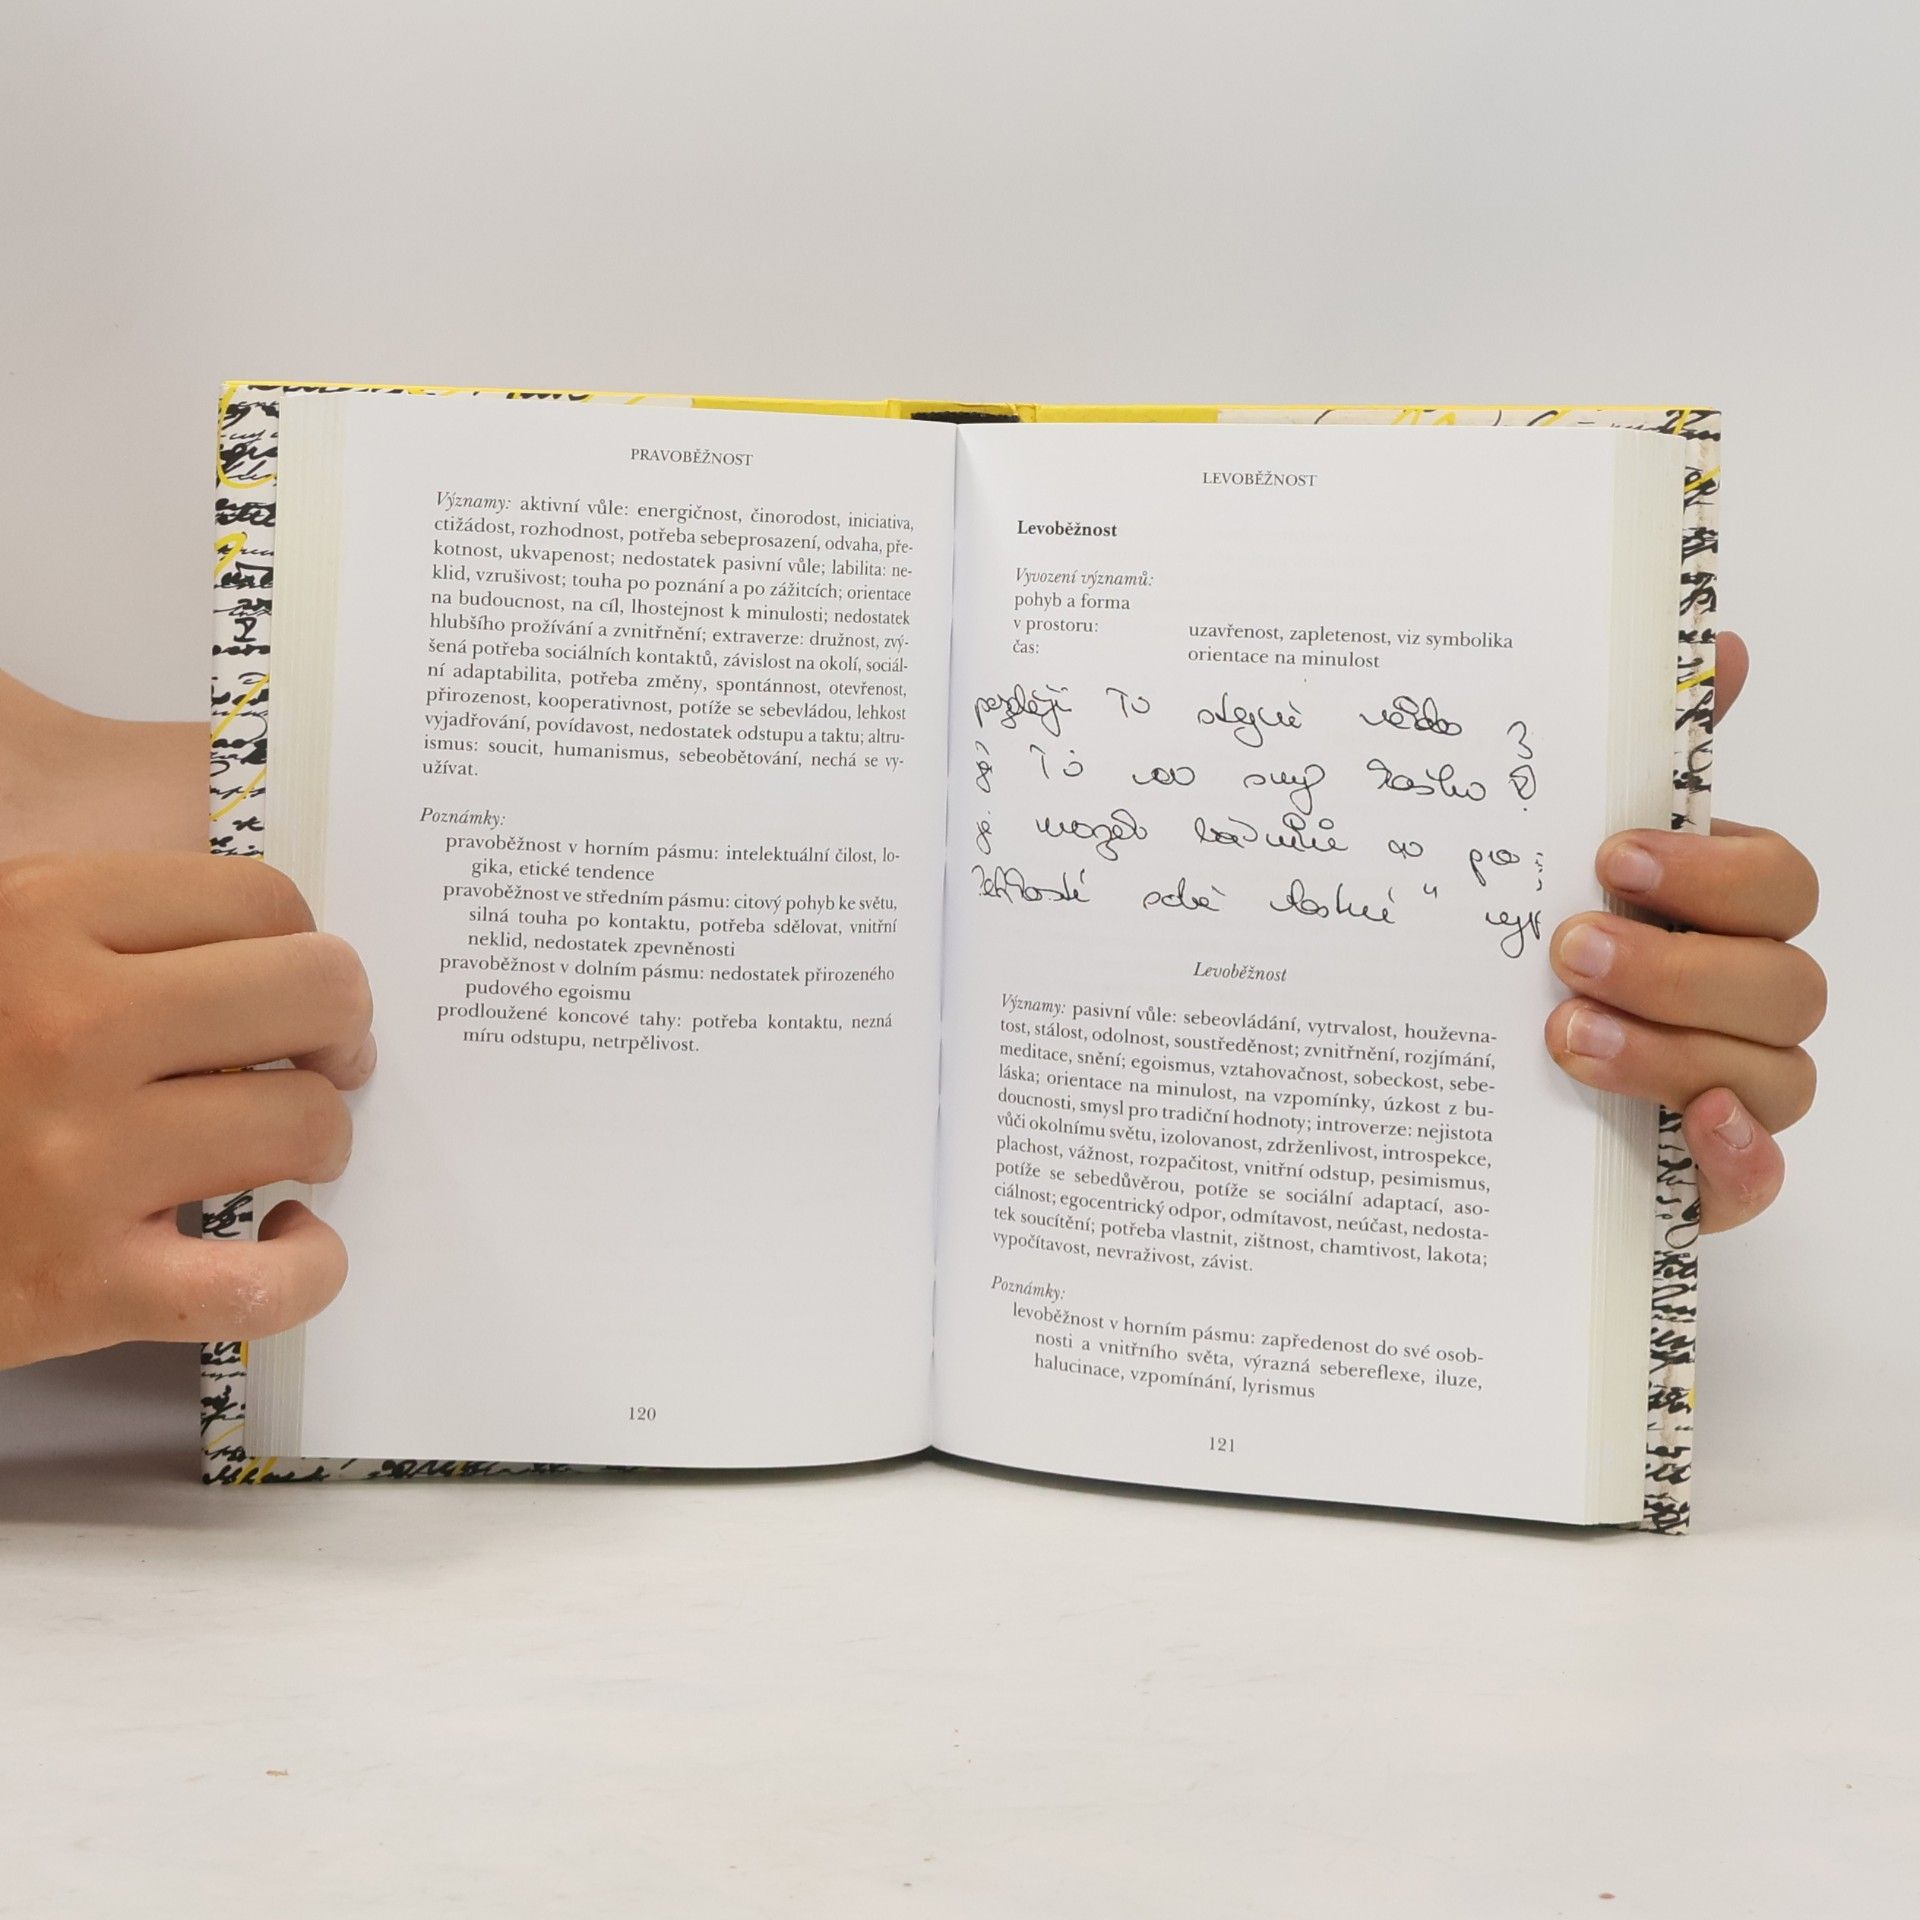 PRAVOBĚŽNOST
Významy: aktivní vůle: energičnost, činorodost, iniciativa,
ctižádost, rozhodnost, potřeba sebeprosazení, odvaha, pře-
kotnost, ukvapenost; nedostatek pasivní vůle; labilita: ne-
klid, vzrušivost; touha po poznání a po zážitcích; orientace
na budoucnost, na cíl, lhostejnost k minulosti; nedostatek
hlubšího prožívání a zvnitřnění; extraverze: družnost, zvý-
šená potřeba sociálních kontaktů, závislost na okolí, sociál-
ní adaptabilita, potřeba změny, spontánnost, otevřenost,
přirozenost, kooperativnost, potíže se sebevládou, lehkost
vyjadřování, povídavost, nedostatek odstupu a taktu; altru-
ismus: soucit, humanismus, sebeobětování, nechá se vy-
užívat.
Poznámky:
pravoběžnost v horním pásmu: intelektuální čilost, lo-
gika, etické tendence
pravoběžnost ve středním pásmu: citový pohyb ke světu,
silná touha po kontaktu, potřeba sdělovat, vnitřní
neklid, nedostatek zpevněnosti
pravoběžnost v dolním pásmu: nedostatek přirozeného
pudového egoismu
prodloužené koncové tahy: potřeba kontaktu, nezná
míru odstupu, netrpělivost.
120
LEVOBĚŽNOST
Levoběžnost
Vyvození významů:
pohyb a forma
v prostoru: uzavřenost, zapletenost, viz symbolika
čas: orientace na minulost
později to stejně
je to
je
sobě vlastní"
Levoběžnost
Významy: pasivní vůle: sebeovládání, vytrvalost, houževna-
tost, stálost, odolnost, soustředěnost; zvnitřnění, rozjímání,
meditace, snění; egoismus, vztahovačnost, sobeckost, sebe-
láska; orientace na minulost, na vzpomínky, úzkost z bu-
doucnosti, smysl pro tradiční hodnoty; introverze: nejistota
vůči okolnímu světu, izolovanost, zdrženlivost, introspekce,
plachost, vážnost, rozpačitost, vnitřní odstup, pesimismus,
potíže se sebedůvěrou, potíže se sociální adaptací, aso-
ciálnost; egocentrický odpor, odmítavost, neúčast, nedosta-
tek soucítění; potřeba vlastnit, zištnost, chamtivost, lakota;
vypočítavost, nevraživost, závist.
Poznámky:
levoběžnost v horním pásmu: zapředenost do své osob-
nosti a vnitřního světa, výrazná sebereflexe, iluze,
halucinace, vzpomínání, lyrismus
121